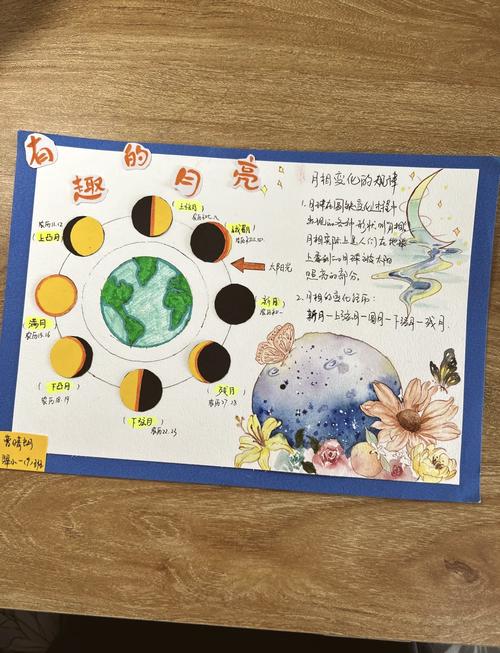 有趣的月亮
月相变化的规律
1.月球在圆缺变化过程中
出现的各种形状叫月相。
月相实际上是人们在地球
上看到的月球被太阳
照亮的部分。
2.月相的变化经历:
新月—上弦月—圆月—下弦月—残月.
(上弦月)
(上凸月)
农历11.12
太阳光
(新月)
农历初一
(满月)
农历15.16
(残月)
农历27.28
(下凸月)
农历18.19
(下弦月)
农历22.23